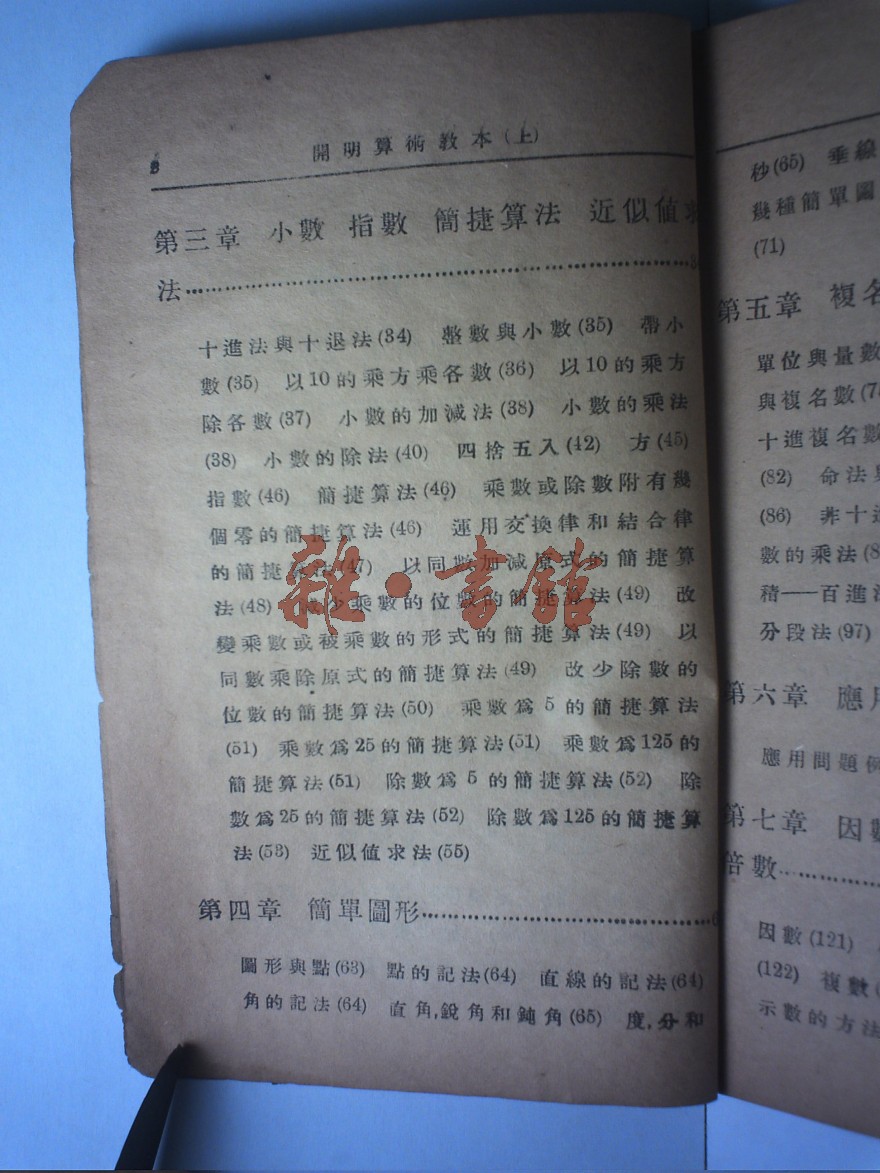 開明算術教本(上)
第三章 小數 指數 簡捷算法 近似値求
法……………………………………
十進法與十退法(34) 整數與小數(35) 帶小
數(35) 以10的乘方乘各數(36) 以10的乘方
除各數(37) 小數的加減法(38) 小數的乘法
(38) 小數的除法(40) 四捨五入(42) 方(45)
指數(46) 簡捷算法(46) 乘數或除數附有幾
個零的簡捷算法(46) 運用交換律和結合律
的簡捷算法(47) 以同數加減原式的簡捷算
法(48) 減少乘數的位數的簡捷算法(49) 改
變乘數或被乘數的形式的簡捷算法(49) 以
同數乘除原式的簡捷算法(49) 改少除數的
位數的簡捷算法(50) 乘數爲5的簡捷算法
(51) 乘數爲25的簡捷算法(51) 乘數爲125的
簡捷算法(51) 除數爲5的簡捷算法(52) 除
數爲25的簡捷算法(52) 除數爲125的簡捷算
法(53) 近似値求法(55)
第四章 簡單圖形……………………
圖形與點(63) 點的記法(64) 直線的記法(64)
角的記法(64) 直角,銳角和鈍角(65) 度,分和
雜·書館
秒(65) 垂線
幾種簡單圖
(71)
第五章 複名
單位與量數
與複名數
十進複名數
(82) 命法
(86) 非十進
數的乘法
積——百進
分段法(97)
第六章 應用
應用問題例
第七章 因數
倍數………
因數(121)
(122) 複數
示數的方法